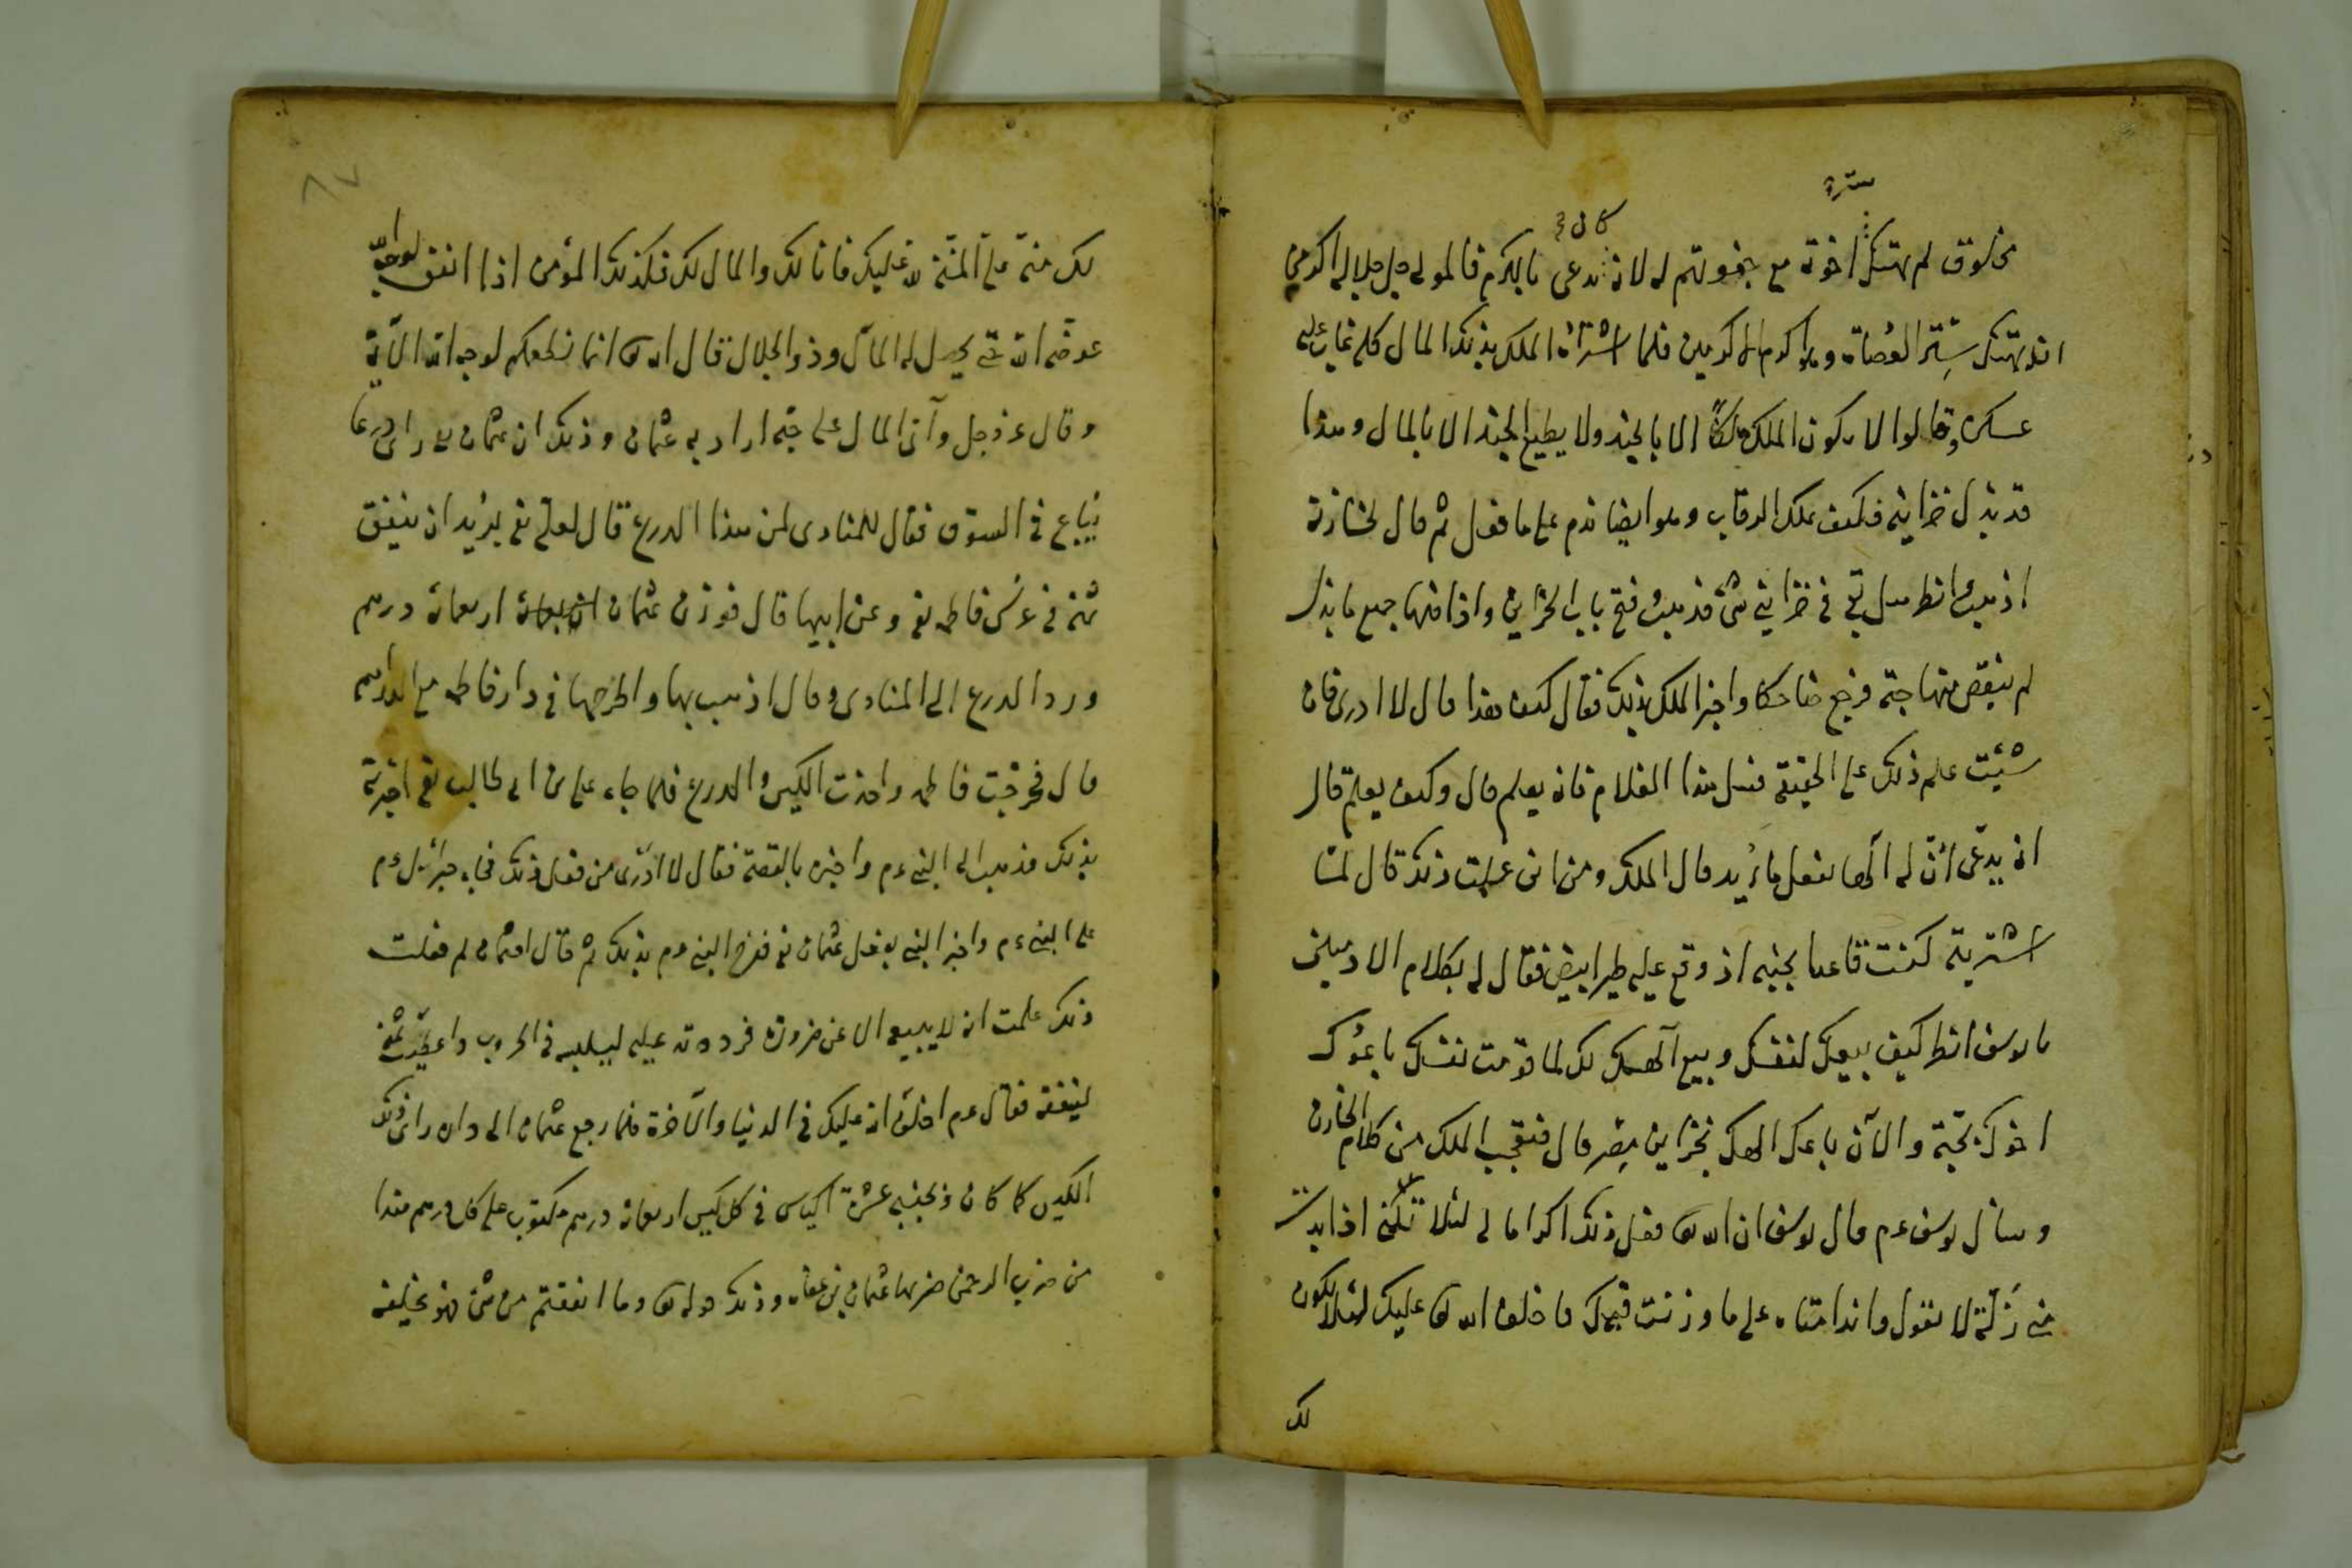 سترة
كان
مخلوق لم يهتك اخوته مع جفوتهم له لانه يدعى بالكرم فالمولى جل جلاله اكرم من
ان يهتك ستر العصاة وهو اكرم الاكرمين فلما اشتراه الملك بذلك المال كله عاب عليه
عسكره وقالوا لا يكون الملك ملكا الا بالجند ولا يطيع الجند الا بالمال وهذا
قد بذل خزاينه فكيف يملك الرقاب وهو ايضا ندم على ما فعل ثم قال لخازنه
اذهب انظر هل بقى فى خزاينى شئ فذهب فتح باب الخزاين واذا فيها جميع ما بذل
لم ينقص منها حبة فرجع ضاحكا واخبر الملك بذلك فقال كيف هذا قال لا ادرى فان
شئت علم ذلك على الحقيقة فسل هذا الغلام فانه يعلم قال وكيف يعلم قال
انه يدعى ان له الها يفعل ما يريد قال الملك ومن اين علمت ذلك قال لما
اشتريته كنت قاعدا بجنبه اذ وقع عليه طير ابيض فقال له بكلام الادميين
يا يوسف انظر كيف بيعك لنفسك وبيع الهك لك لما قومت نفسك باعوك
اخوك بحبة والآن باعك الهك بخزاين مصر قال فتعجب الملك من كلام الخازن
وسأل يوسف ع م قال يوسف ان الله تعا فعل ذلك اكراما لى لئلا اذا بدت
منى زلة لا تقول وا ندامتاه على ما وزنت قيمتك فاخلف الله تعا عليك لئلا يكون
لك
٨٧
لك منة على المنة لله عليك فانا لك والمال لك فكذلك المؤمن اذا انفق لوجه الله
عوضه الله حتى يحصل له المال وذو الجلال قال الله تعا انما نطعمكم لوجه الله الآية
وقال عز وجل وآتى المال على حبه اراد به عثمان وذلك ان عثمان رضى راى درعا
يباع فى السوق فقال للمنادى لمن هذا الدرع قال لعلى رضى يريد ان ينفق
ثمنه فى عرس فاطمه رضى وعن ابيها قال فوزن عثمان اربعمائة درهم
ورد الدرع الى المنادى وقال اذهب بها واطرحها فى دار فاطمه مع الدراهم
قال فخرجت فاطمه واخذت الكيس والدرع فلما جاء على بن ابى طالب رضى اخبرته
بذلك فذهب الى النبى ع م واخبره بالقصة فقال لا ادرى من فعل ذلك فجاء جبرائيل ع م
على النبى ع م واخبر النبى بفعل عثمان رضى ففرح النبى ع م بذلك ثم قال لعثمان لم فعلت
ذلك علمت انه لا يبيعه الا عن ضرورة فرددته عليه ليلبسه فى الحروب واعطيت ثمنه
لينفقه فقال ع م اخلف الله عليك فى الدنيا والآخرة فلما رجع عثمان الى داره راى ذلك
الكيس كما كان وبجنبه عشرة اكياس فى كل كيس اربعمائة درهم مكتوب على كل درهم هذا
من ضرب الرحمن ضربها عثمان بن عفان وذلك قوله تعا وما انفقتم من شئ فهو يخلفه